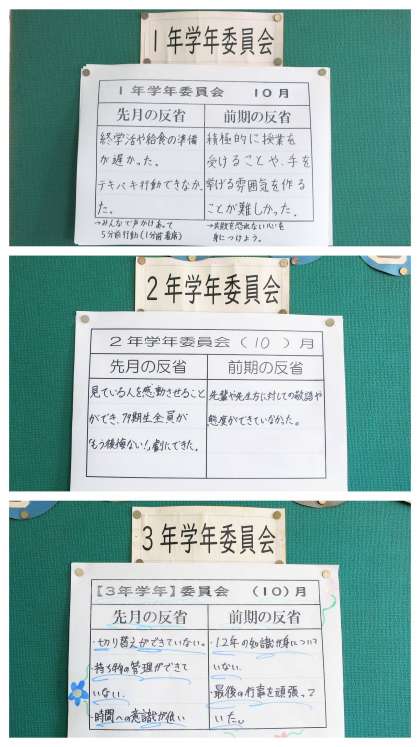 1年学年委員会
1年学年委員会 10月
先月の反省
終学活や給食の準備
が遅かった。
テキパキ行動できなかっ
た。
→みんなで声かけあって
5分前行動(1分前着席)
前期の反省
積極的に授業を
受けることや、手を
挙げる雰囲気を作る
ことが難しかった。
→失敗を恐れない心を
身につけよう。
2年学年委員会
2年学年委員会(10)月
先月の反省
見ている人を感動させること
ができ、79期生全員が
「もう後悔ない!」劇にできた。
前期の反省
先輩や先生方に対しての敬語や
態度ができていなかった。
3年学年委員会
[3年学年]委員会 (10)月
先月の反省
・切り替えができていない。
・持ち物の管理ができて
いない。
・時間への意識が低い
前期の反省
・12年の知識が身について
いない。
・最後の行事を頑張って
いた。